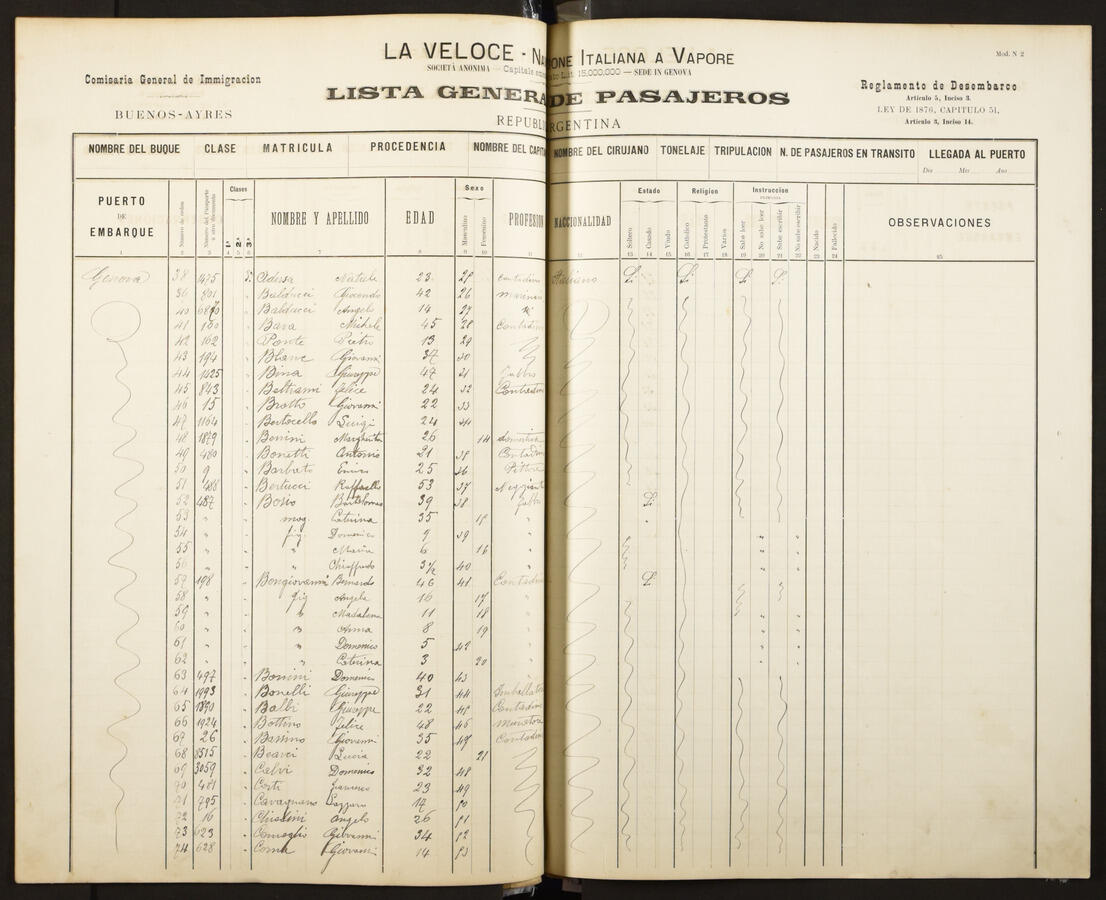 LA VELOCE - Na ONE ITALIANA A VAPORE
Mod. N 2
SOCIETÀ ANONIMA — Capitale 15,000,000 — SEDE IN GENOVA
Comisaria General de Immigracion
BUENOS-AYRES
LISTA GENERA DE PASAJEROS
REPUBLI ARGENTINA
Reglamento de Desembarco
Articulo 5, Inciso 3.
LEY DE 1876, CAPITULO 51,
Articulo 3, Inciso 14.
NOMBRE DEL BUQUE CLASE MATRICULA PROCEDENCIA NOMBRE DEL CAPIT NOMBRE DEL CIRUJANO TONELAJE TRIPULACION N. DE PASAJEROS EN TRANSITO LLEGADA AL PUERTO
Dia Mes Ano
PUERTO DE EMBARQUE Numero de orden Numero del Pasaporte u otro documento Clases 1ª 2ª 3ª NOMBRE Y APELLIDO EDAD Sexo Masculino Femenino PROFESION NACCIONALIDAD Estado Soltero Casado Viudo Religion Catolico Protestante Varios Instruccion PRIMARIA Sabe leer No sabe leer Sabe escribir No sabe escribir Nacido Fallecido OBSERVACIONES
1 2 3 4 5 6 7 8 9 10 11 12 13 14 15 16 17 18 19 20 21 22 23 24 25
Genova 38 1475 Adessa Natale 23 contadino Italiano Si Si Si Si
801 Balducci Giocondo 42 26
40 Balducci Angelo 14 27
41 Bava Michele 45 28 Contadino
42 162 Ponte Pietro 13 29
43 194 Blanc Giovanni 37 30
44 1425 Bina Giuseppe 47 31 fabbro
45 843 Beltrami Felice 24 32 Contadino
46 15 Brotto Giovanni 22 33
47 1164 Bertocello Luigi 24
48 1879 Bonini Margherita 26 14 domestica
49 480 Bonetti Antonio 21 Contadino
50 9 Barbato Enrico 25 36 Pittore
51 486 Bertucci Raffaello 53 37 Negoziante
52 487 Bosio Bartolomeo 39 38 fabbro Si
53 " mog. Caterina 35 "
54 " fig. Domenico 9 39 "
55 " " Maria 6 16 "
56 " " 3½ 40 "
57 198 Bongiovanni Bernardo 46 41 Contadino Si
58 " fig Angela 16 17 "
59 " " Madalena 11 18 "
60 " " Anna 8 19 "
61 " " Domenico 5 42 "
62 " " Caterina 3 20 "
63 497 Bonini Domenico 40 43
64 1993 Bonelli Giuseppe 31 44
65 1890 Balbi Giuseppe 22 45 Contadino
66 1924 Bottino Felice 48 46
67 26 Bassino Giovanni 35 Contadino
68 8515 Lucia 22 21
69 3059 Calvi Domenico 32 48
70 481 Corti Francesco 23 49
71 795 Cavagnaro Lazzaro 14 50
72 16 Chissini Angelo 26 51
73 623 Giovanni 34 52
74 628 Coma Giovanni 14 53